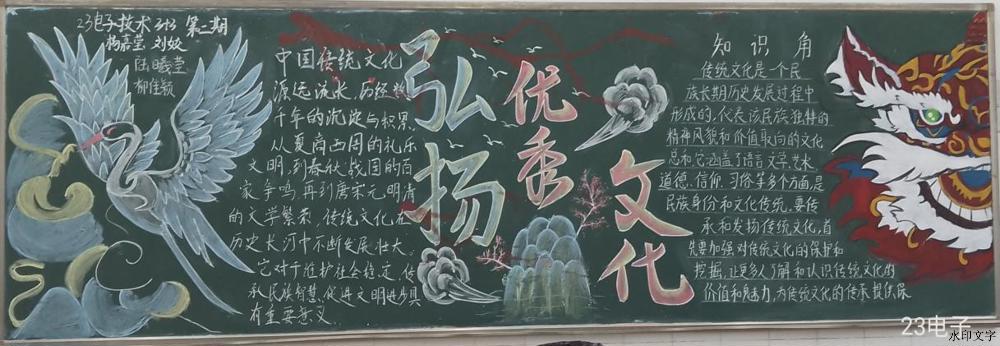 23电子技术3+3 第二期
杨嘉莹 刘姣
陆曦莹
柳佳颖
中国传统文化
源远流长，历经数
千年的沉淀与积累，
从夏商西周的礼乐
文明，到春秋战国的百
家争鸣，再到唐宋元明清
的文学繁荣，传统文化在
历史长河中不断发展壮大。
它对于维护社会稳定、传
承民族智慧、促进文明进步具
有重要意义。
弘扬
优秀
文化
知识角
传统文化是一个民
族长期历史发展过程中
形成的，代表该民族独特的
精神风貌和价值取向的文化
总和，它涵盖了语言、文学、艺术、
道德、信仰、习俗等多个方面，是
民族身份和文化传统，要传
承和发扬传统文化，首
先要加强对传统文化的保护和
挖掘，让更多人了解和认识传统文化的
价值和魅力，为传统文化的传承提供保
23电子
水印文字